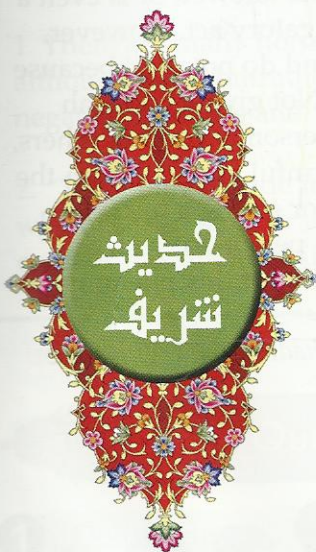 حديث
شريف